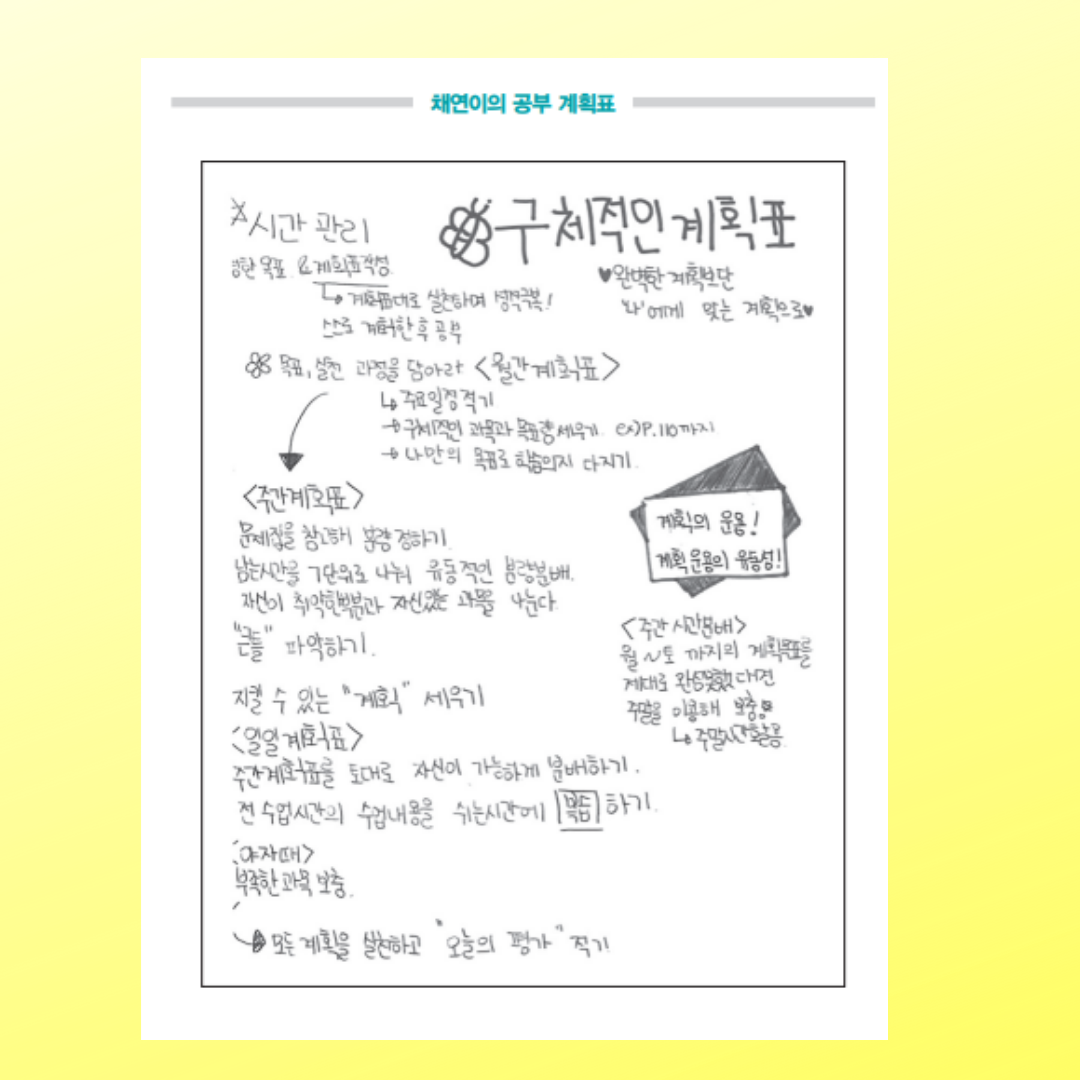 채연이의 공부 계획표
구체적인 계획표
♥완벽한 계획보단
'나'에게 맞는 계획으로♥
시간 관리
한 목표 & 계획표작성
↳ 계획표대로 실천하며 성적극복!
스스로 계획한 후 공부
목표, 실천 과정을 담아라 <월간계획표>
↳ 주요일정적기
→ 구체적인 과목과 목표량세우기. ex)P.110까지
→ 나만의 목표로 학습의지 다지기.
<주간계획표>
문제집을 참고해 분량 정하기.
남는시간을 7단위로 나눠 유동적인 분량분배.
자신이 취약한부분과 자신있는 과목을 나눈다.
파악하기.
지킬 수 있는 "계획" 세우기
계획의 운용!
계획 운용의 유동성!
<주간 시간분배>
월~토 까지의 계획목표를
제대로 완성못했다면
주말을 이용해 보충
↳ 주말시간활용.
<일일계획표>
주간계획표를 토대로 자신이 가능하게 분배하기.
전 수업시간의 수업내용을 쉬는시간에 복습 하기.
<야자때>
부족한 과목 보충.
모든 계획을 실천하고 "오늘의 평가" 적기